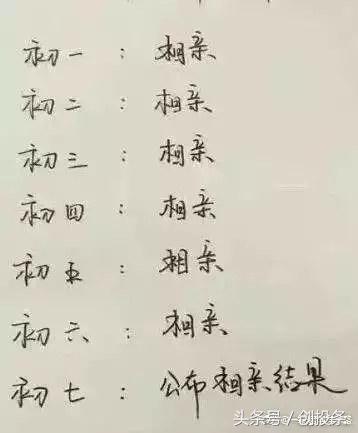 初一：相亲
初二：相亲
初三：相亲
初四：相亲
初五：相亲
初六：相亲
初七：公布相亲结果
头条号／创投条